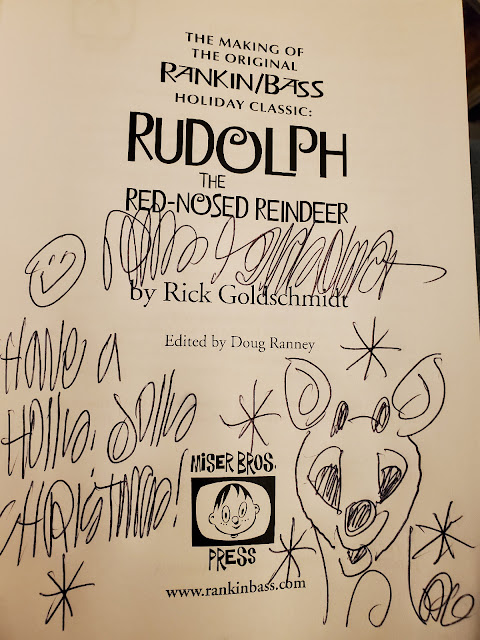 THE MAKING OF
THE ORIGINAL
RANKIN/BASS
HOLIDAY CLASSIC:
RUDOLPH
THE
RED-NOSED REINDEER
by Rick Goldschmidt
Edited by Doug Ranney
HAVE A
HOLLY, JOLLY
CHRISTMAS!
MISER BROS.
PRESS
www.rankinbass.com